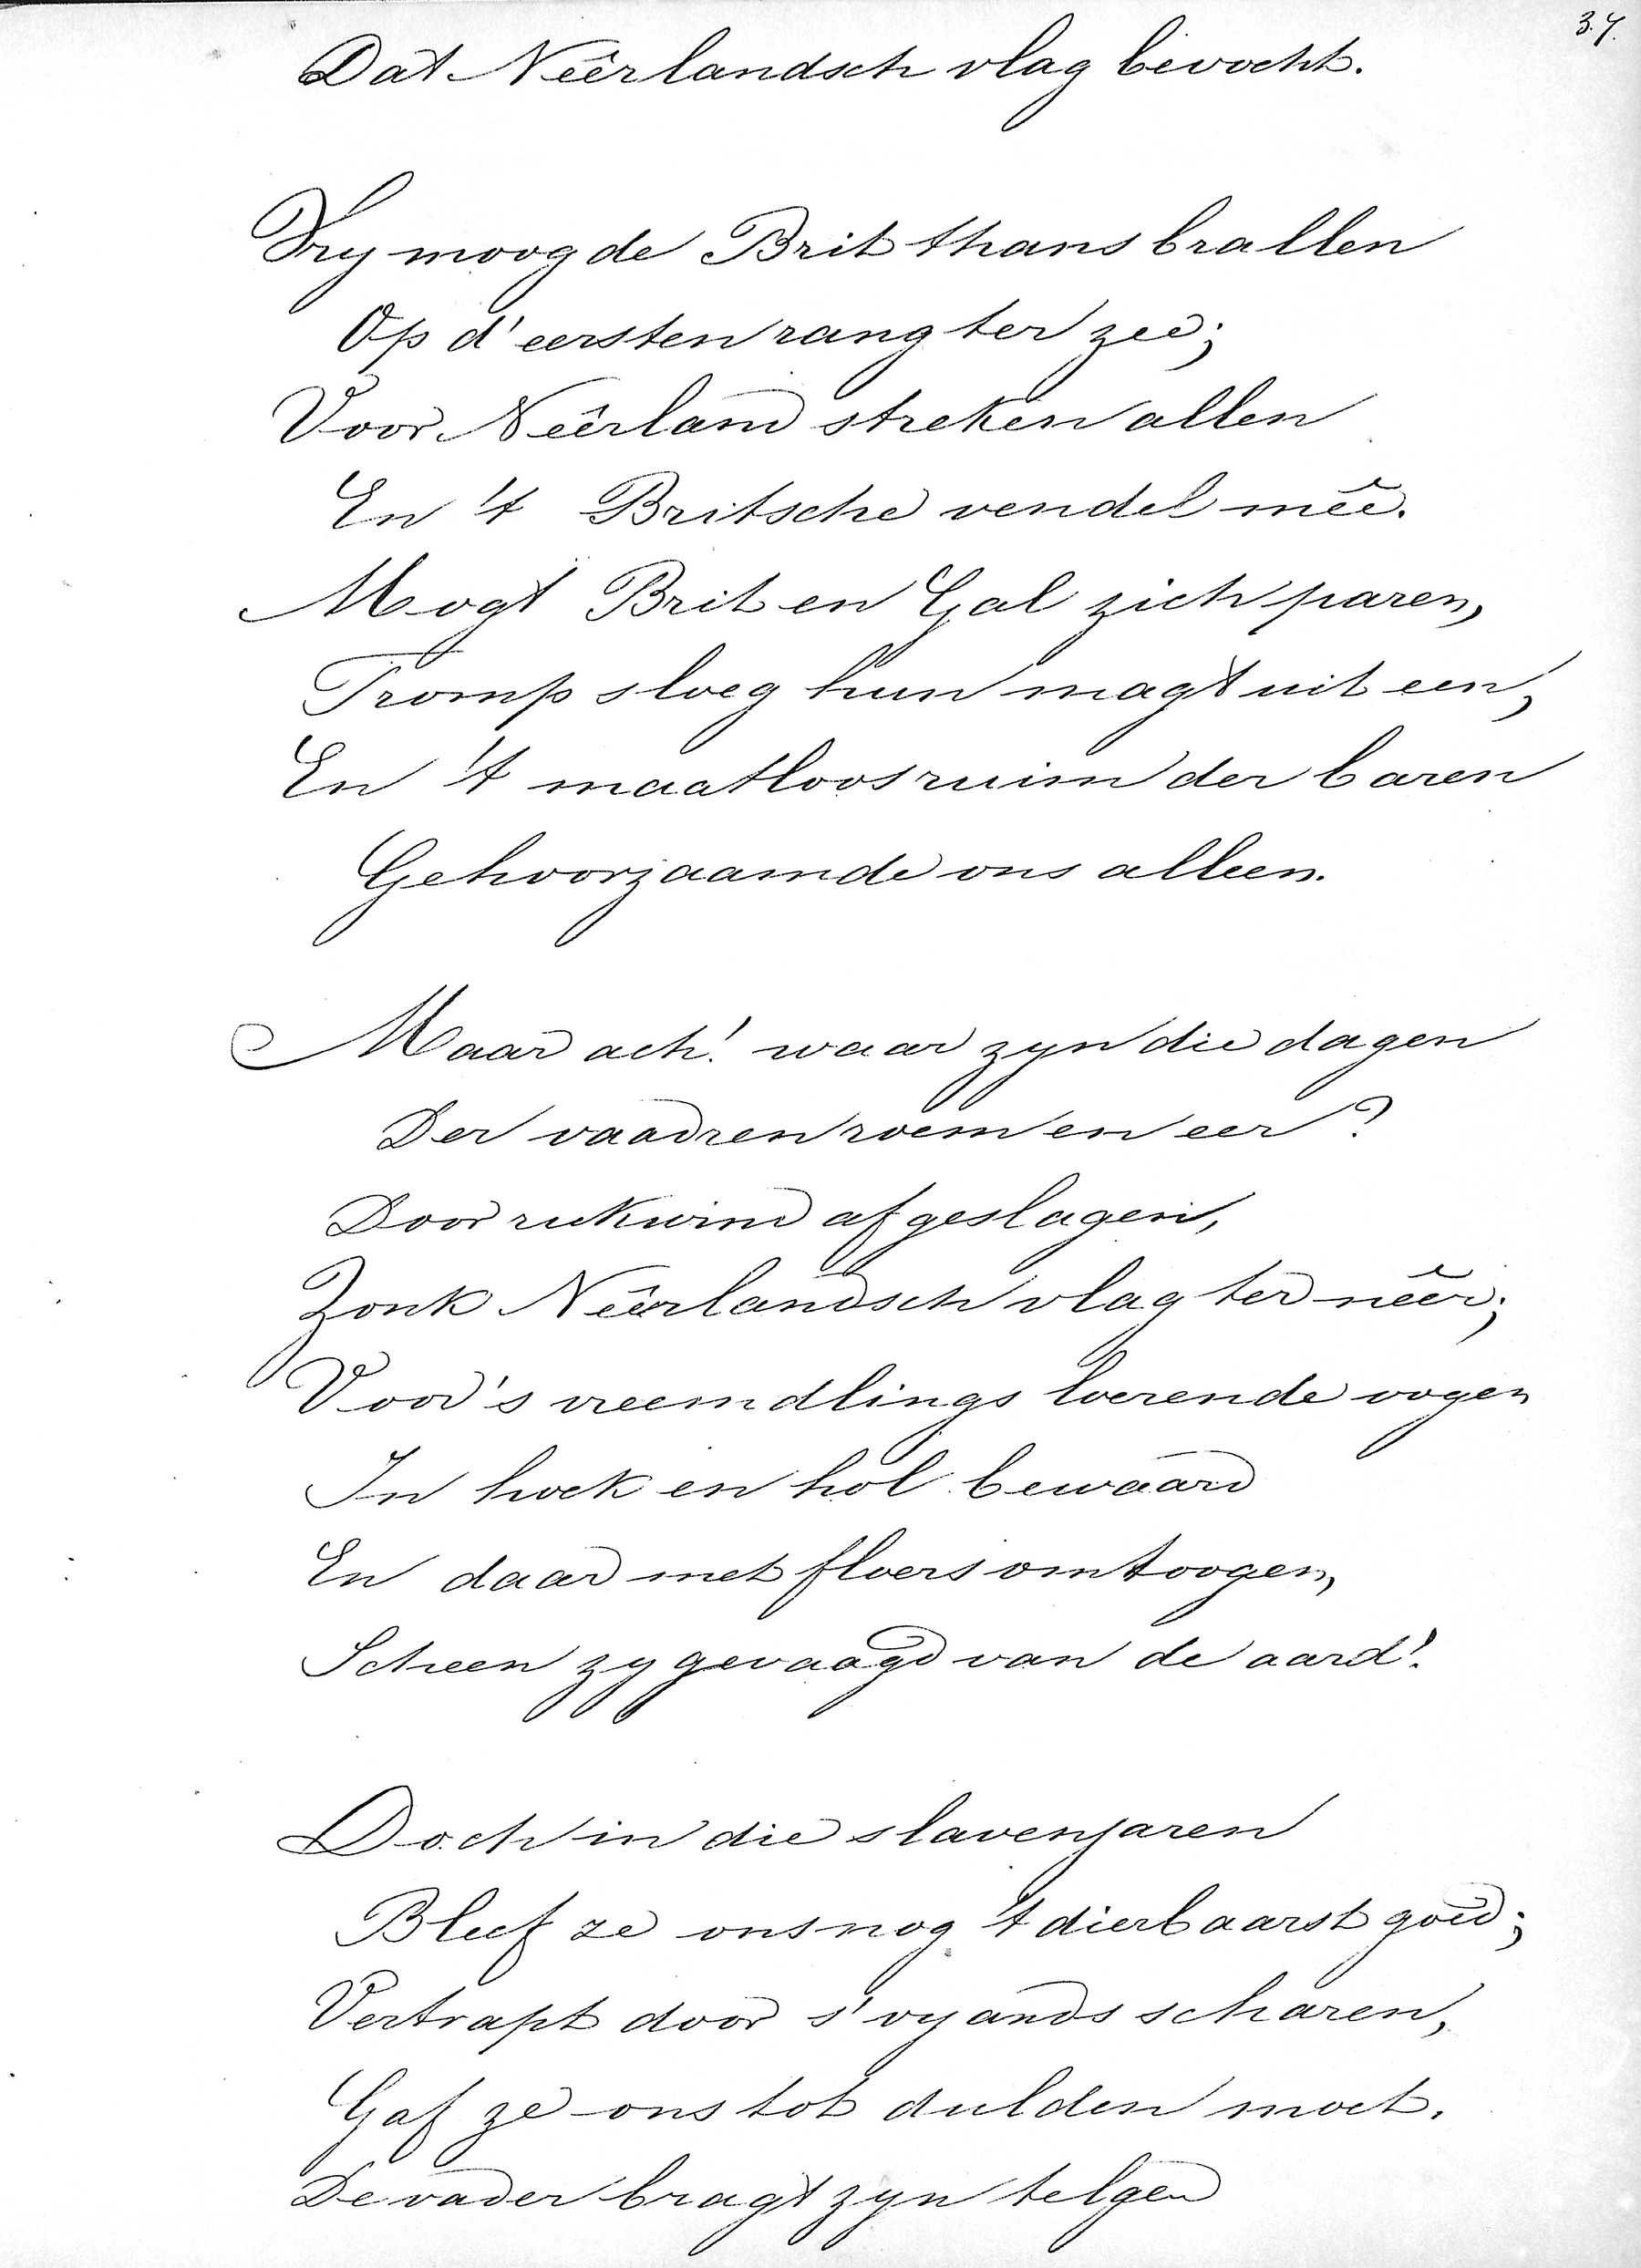 37.
Dat Neêrlandsch vlag bevocht.
Vry moog de Brit thans brallen
Op d'eersten rang ter zee;
Voor Neêrland streken allen
En 't Britsche vendel meê.
Mogt Brit en Gal zich paren,
Tromp sloeg hun magt uit een,
En 't maatloos ruim der baren
Gehoorzaamde ons alleen.
Maar ach! waar zyn die dagen
Der vaadren roem en eer?
Door rukwind afgeslagen,
Zonk Neêrlandsch vlag ter neêr;
Voor 's vreemdlings loerende oogen
In hoek en hol bewaard
En daar met floers omtoogen,
Scheen zy gevaagd van de aard!
Doch in die slavenjaren
Bleef ze ons nog 't dierbaarst goed;
Vertrapt door s'vyands scharen,
Gaf ze ons tot dulden moet.
De vader bragt zyn telgen